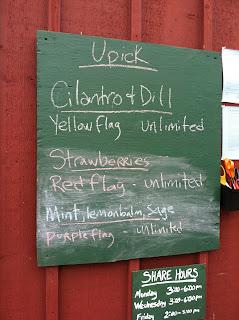 Upick
Cilantro & Dill
Yellow flag unlimited
Strawberries
Red flag - unlimited
Mint, lemonbalm, sage
purple flag - unlimited
SHARE HOURS
Monday 3:00-6:00pm
Wednesday 3:00-6:00pm
Friday 2:00-5:00pm